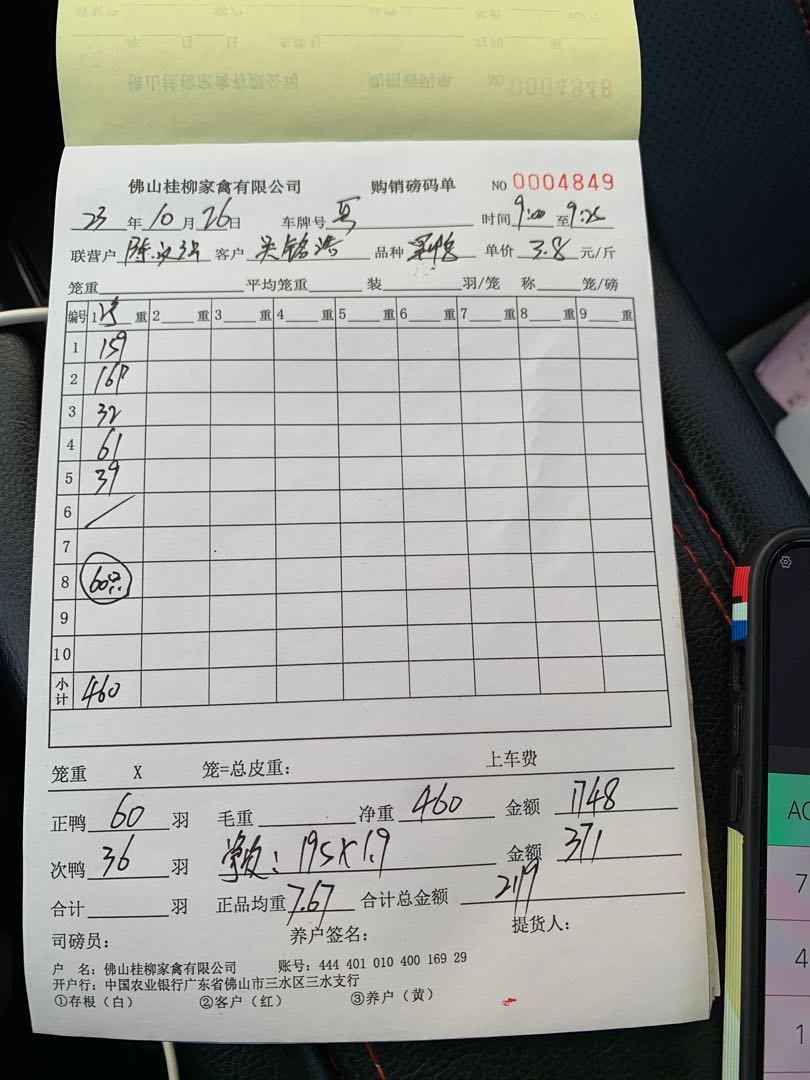 佛山桂柳家禽有限公司 购销磅码单 NO 0004848
佛山桂柳家禽有限公司 购销磅码单 NO 0004849
23年10月26日 车牌号 时间9:00至9:25
联营户 客户吴铭浩 品种 单价3.8元/斤
笼重 平均笼重 装 羽/笼 称 笼/磅
编号 1 重 2 重 3 重 4 重 5 重 6 重 7 重 8 重 9 重
1 159
2 167
3 32
4 61
5 39
6
7
8 60只
9
10
小计 460
笼重 X 笼=总皮重: 上车费
正鸭60羽 毛重 净重460 金额1748
次鸭36羽 : 195X1.9 金额371
合计 羽 正品均重7.67 合计总金额2119
司磅员: 养户签名: 提货人:
户 名: 佛山桂柳家禽有限公司 账号: 444 401 010 400 169 29
开户行: 中国农业银行广东省佛山市三水区三水支行
①存根(白) ②客户(红) ③养户(黄)
AC
7
4
1